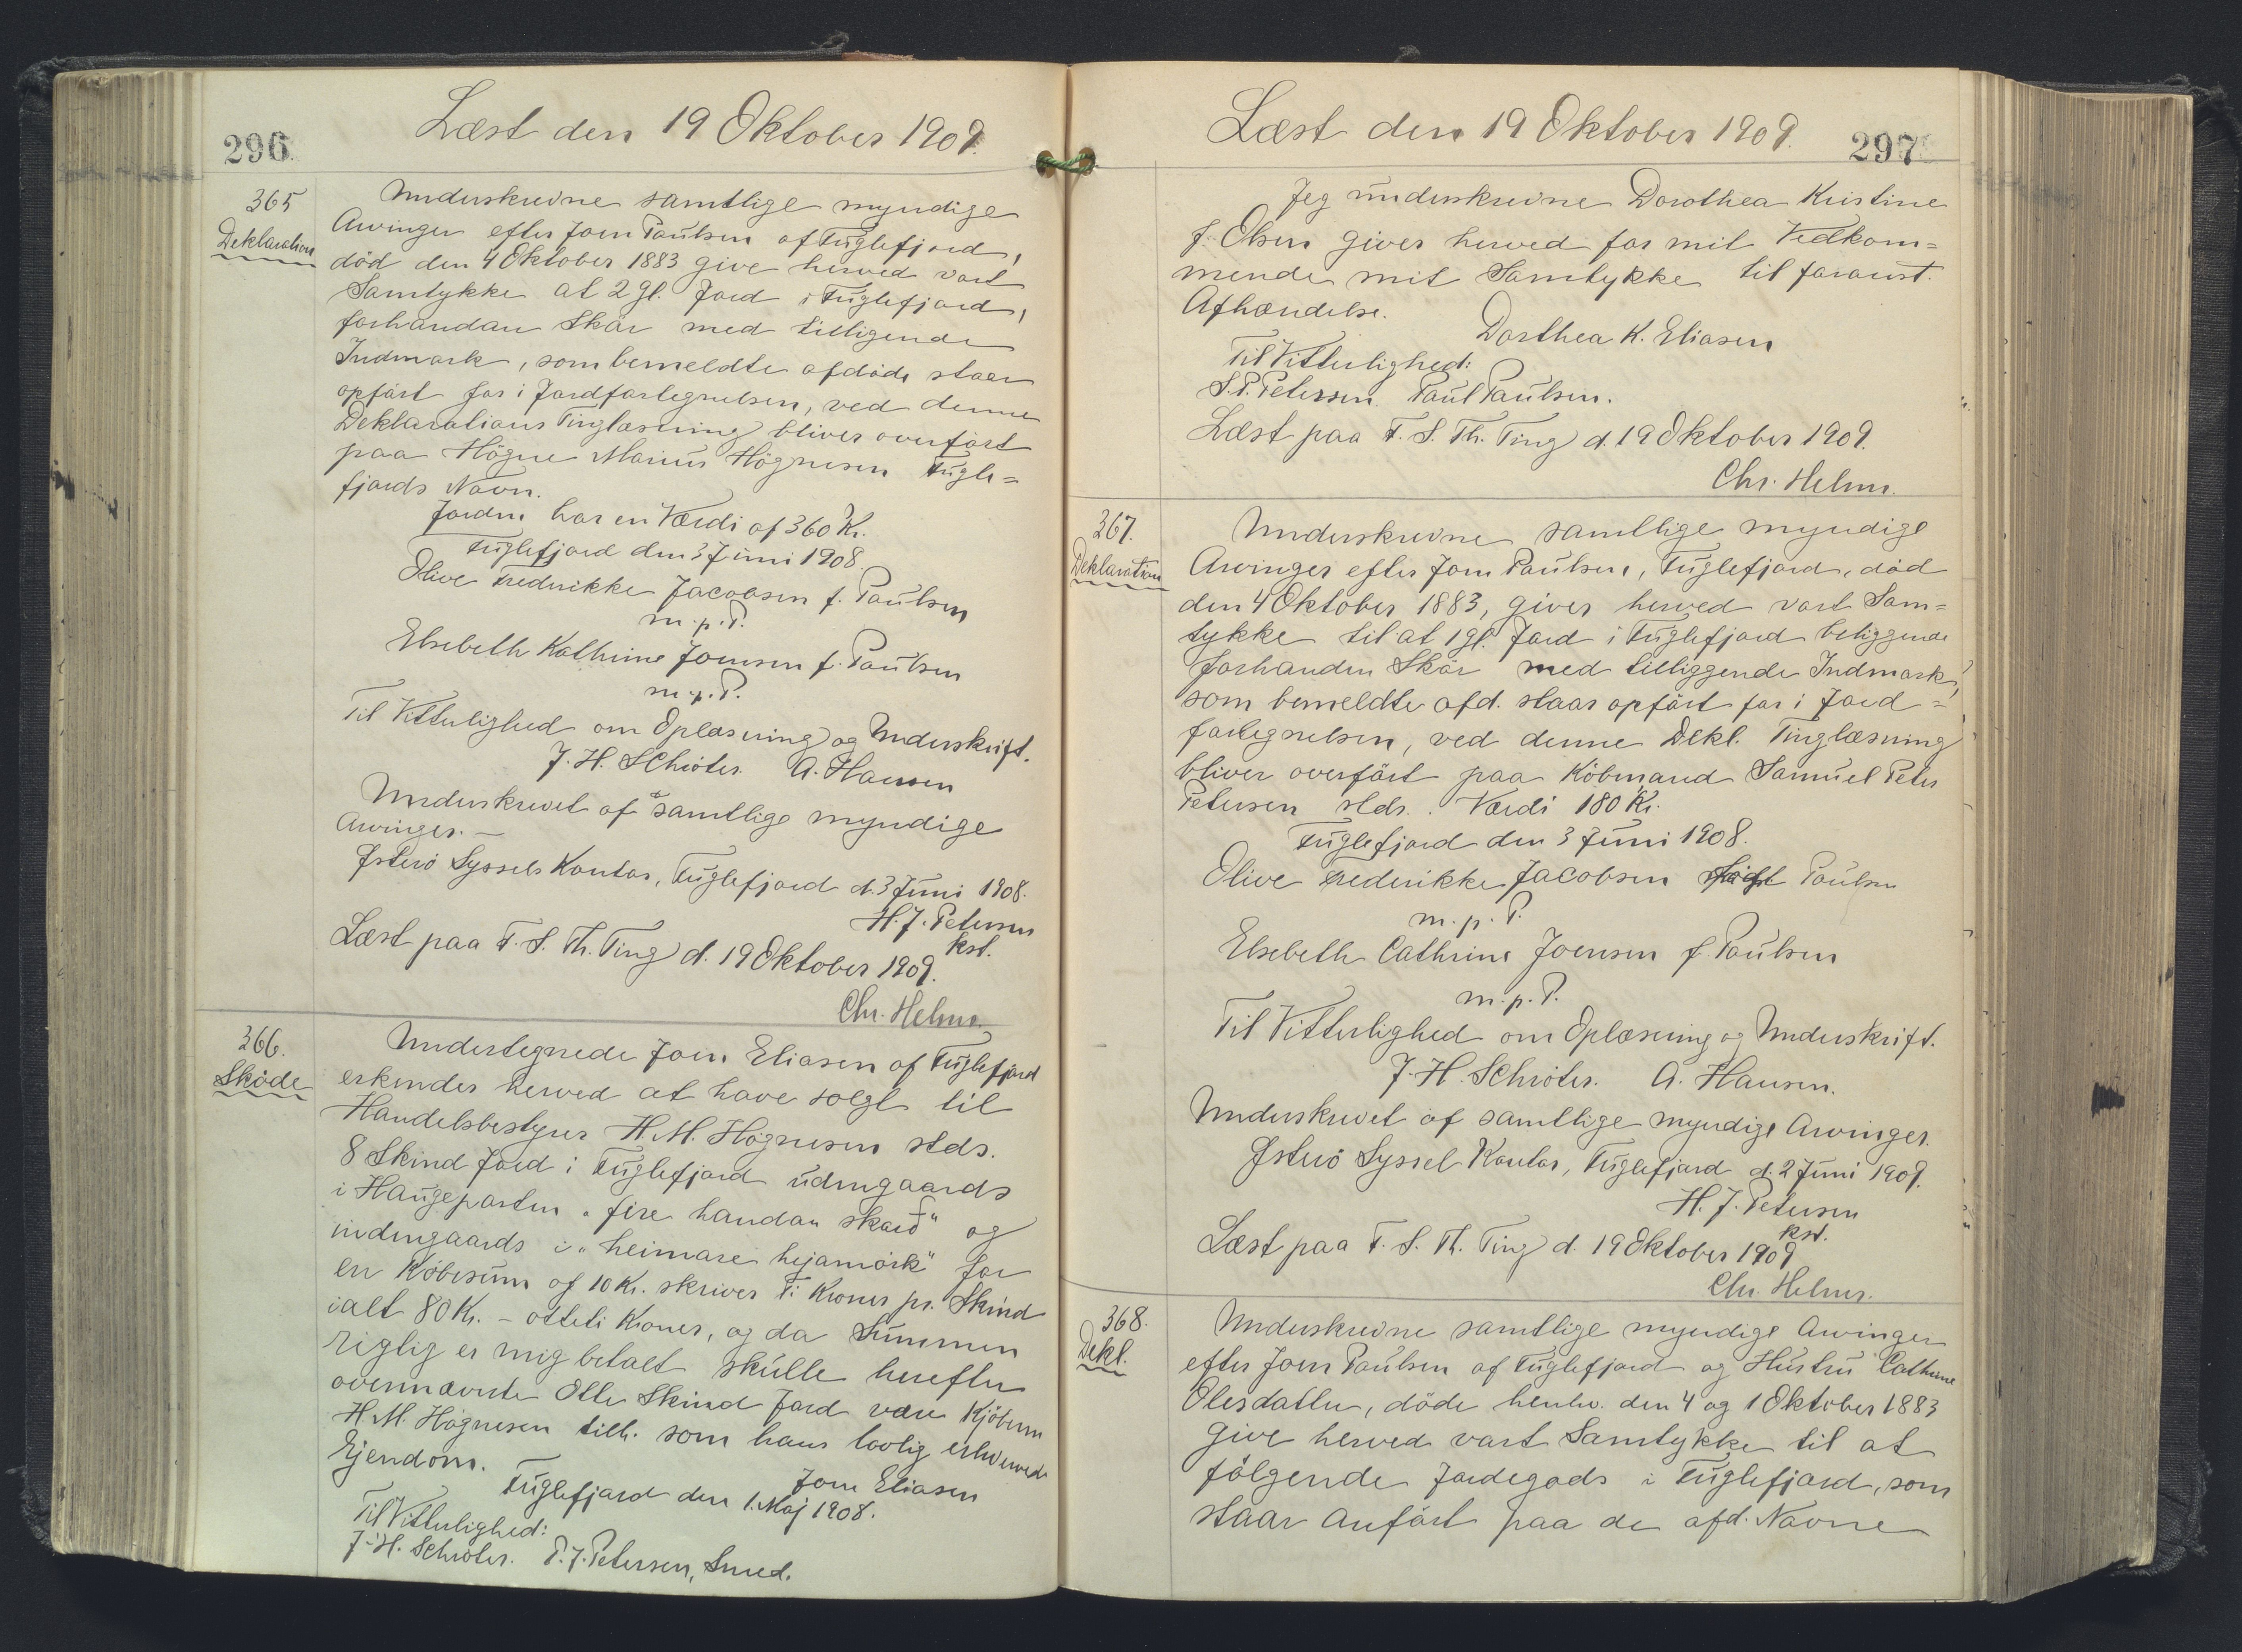 296.
Læst den 19 Oktober 1909.
365
Deklaration
Underskrevne samtlige myndige
Arvinger efter Joen Paulsen af Fuglefjord,
død den 4 Oktober 1883 give herved vort
Samtykke at 2 gl. Jord i Fuglefjord,
forhandan Skår med tilligende
Indmark, som bemeldte afdøde staar
opført for i Jordfortegnelsen, ved denne
Deklarations Tinglæsning bliver overført
paa Högne Marius Högnesen Fugle=
fjords Navn.
Jorden har en Værdi af 360 Kr.
Fuglefjord den 3 Juni 1908.
Olive Fredrikke Jacobsen f. Paulsen
m.p.P.
Elsebeth Kathrine Joensen f. Paulsen
m.p.P.
Til Vitterlighed om Oplæsning og Underskrift.
J.H. Schröter. A. Hansen
Underskrevet af samtlige myndige
Arvinger. —
Østerö Syssels Kontor, Fuglefjord d. 3 Juni 1908.
H.J. Petersen
kst.
Læst paa F. S. Th. Ting d. 19 Oktober 1909.
Chr. Helms.
366.
Sköde
Undertegnede Joen Eliasen af Fuglefjord
erkender herved at have solgt til
Handelsbestyrer H.M. Högnesen stds.
8 Skind Jord i Fuglefjord udengaards
i Haugeparten „fire handan skarð" og
indengaards i „heimare hejamörk" for
en Köbesum af 10 Kr. skriver Ti Kroner pr. Skind
ialt 80 Kr. - otteti Kroner, og da Summen
rigtig er mig betalt skulle herefter
ovennævnte Otte Skind Jord være Kjöberen
H.M. Högnesen tilh. som hans lovlig erhvervede
Ejendom.
Joen Eliasen
Fuglefjord den 1. Maj 1908.
Til Vitterlighed:
J.H. Schröter. P.J. Petersen, Smed.
Læst den 19 Oktober 1909.
297
Jeg underskrevne Dorothea Kristine
f. Olsen giver herved for mit Vedkom=
mende mit Samtykke til foranst.
Afhændelse.
Dorthea K. Eliasen
Til Vitterlighed:
S.P. Petersen. Paul Paulsen.
Læst paa F. S. Th. Ting d. 19 Oktober 1909.
Chr. Helms.
367.
Deklaration
Underskrevne samtlige myndige
Arvinger efter Joen Paulsen, Fuglefjord, død
den 4 Oktober 1883, giver herved vort Sam=
tykke til at 1 gl. Jord i Fuglefjord beliggende
forhanden Skår med tilliggende Indmark,
som bemeldte afd. staar opført for i Jord=
fortegnelsen, ved denne Dekl. Tinglæsning
bliver overført paa Köbmand Samuel Peter
Petersen stds. Værdi 180 Kr.
Fuglefjord den 3 Juni 1908.
Olive Frederikke Jacobsen født Paulsen
m.p.P.
Elsebeth Cathrine Joensen f. Paulsen
m.p.P.
Til Vitterlighed om Oplæsning og Underskrift.
J.H. Schröter. A. Hansen.
Underskrevet af samtlige myndige Arvinger.
Østerö Syssel Kontor, Fuglefjord d. 2 Juni 1909.
H.J. Petersen
kst.
Læst paa F. S. Th. Ting d. 19 Oktober 1909
Chr. Helms.
368.
Dekl.
Underskrevne samtlige myndige Arvinger
efter Joen Paulsen af Fuglefjord og Hustru Cathrine
Olesdatter, døde henhv. den 4 og 1 Oktober 1883
give herved vort Samtykke til at
følgende Jordegods i Fuglefjord, som
staar anført paa de afd. Navne